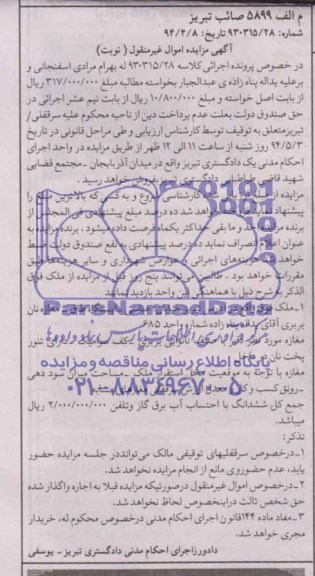 م الف ۵۸۹۹ صائب تبریز
شماره: ۹۳۰۳۱۵/۲۸ تاریخ: ۹۴/۲/۸
آگهی مزایده اموال غیرمنقول ( نوبت)
در خصوص پرونده اجرائی کلاسه ۹۳۰۳۱۵/۲۸ له بهرام مرادی اسفنجانی و
برعلیه یداله پناه زاده ی عبدالجبار بخواسته مطالبه مبلغ ۳۱۷/۰۰۰/۰۰۰ ریال
از بابت اصل خواسته و مبلغ ۱۰/۸۰۰/۰۰۰ ریال از بابت نیم عشر اجرائی در
حق صندوق دولت بعلت عدم پرداخت دین از ناحیه محکوم علیه سرقفلی/
تبریزمتعلق به توقیف توسط کارشناس ارزیابی و طی مراحل قانونی در تاریخ
۹۴/۵/۳ روز شنبه از ساعت ۱۱ الی ۱۲ ظهر از طریق مزایده در واحد اجرای
احکام مدنی یک دادگستری تبریز واقع در میدان آذربایجان ـ مجتمع قضایی
شهید قاضی طباطبایی دادگستری تبریز بفروش خواهد رسید .
مزایده از قیمت کارشناسی شروع و به کسی که بالاترین مبلغ را
پیشنهاد نماید خواهد شد ده درصد مبلغ پیشنهادی فی المجلس از
برنده مزایده اخذ و ما بقی حداکثر یکماه فرصت داده میشود ، برنده مزایده به
عنوان اعلام انصراف نماید ده درصد پیشنهادی به نفع صندوق دولت ضبط
خواهد شد هزینه‌های اجرائی و عوارض شهرداری و سایر هزینه‌ها طبق
مقررات خواهد بود . طالبین می توانند پنج روز قبل از مزایده از ملک فوق
الذکر به شرح ذیل با هماهنگی این واحد بازدید نمایند
بربری آقای یداله پناه زاده شماره واحد ۶۸۵
مغازه با توجه به موقعیت محل استقرار ملک ـ مساحت میزان سود دهی
جمع کل ششدانگ با احتساب آب برق گاز وتلفن ۲/۰۰۰/۰۰۰/۰۰۰ ریال
میباشد.
تذکر:
۱ـ درخصوص سرقفلیهای توقیفی مالک می‌تواند‌در جلسه مزایده حضور
یابد، عدم حضوروی مانع از انجام مزایده نخواهد شد.
۲ـ درخصوص اموال غیرمنقول درصورتیکه مزایده قبلا به اجاره واگذار شده
حق شخص ثالث دراینخصوص لحاظ نخواهد شد.
۳ـ مفاد ماده ۱۴۴قانون اجرای احکام مدنی درخصوص محکوم له، خریدار
مجری خواهد شد.
دادورزاجرای احکام مدنی دادگستری تبریز ـ یوسفی
ParsNamadData
پایگاه اطلاع رسانی مناقصه و مزایده
۰۲۱-۸۸۳۴۹۶۷۰-۵